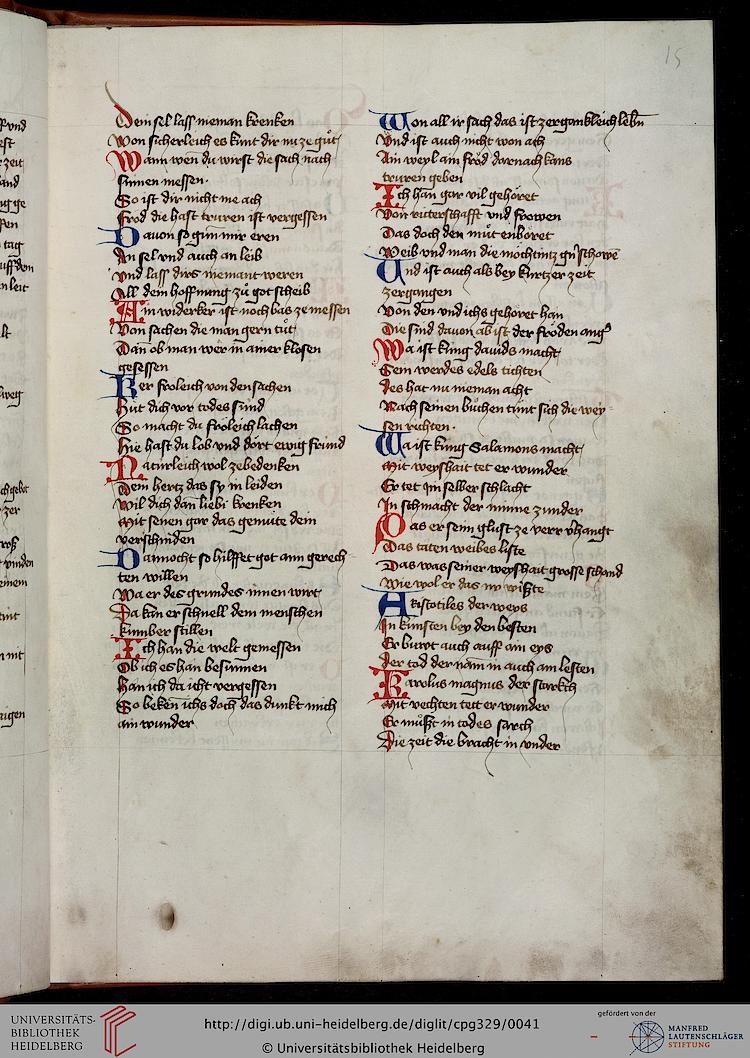 15
Dein sel lass nieman krenken
Won sicherleich es kunt dir nü ze güt
Wann wen du wirst die sach nach
sinnen messen.
So ist dir nicht me ach
Fröd die hast truren ist vergessen
Dauon so günn mir eren
An sel vnd auch an leib
Vnd lass dirs niemant weren
All dein hoffnung zů got scheib
Ain widerker ist noch bas ze messen
Von sachen die man gern tůt
Dan ob man wer in ainer klosen
gesessen
Ker frolich von den sachen
Hüt dich vor todes sünd
So macht du frölich lachen
Hie hast du lob vnd dort ewig fründ
Natürleich wol ze bedenken
Dem hertz das sy in leiden
Wil dich dan liebi krenken
Mit senen gar das gemüte dein
verschinden
Dannocht so hilffet got ainn gerech
ten willen
Wa er des grundes innen wirt
Da kan er schnell dem menschen
kumber stillen
Ich han die welt gemessen
Ob ich es han besinnen
Han ich da icht vergessen
So beken ichs doch das dunkt mich
ain wunder
Won all ir sach das ist zergankleich lebn
Vnd ist auch nicht won ach
Ain weyl ain fröd darnach kans
truren geben
Ich han gar vil gehöret
Von ritterschafft vnd frowen
Das doch den müt enboret
Weib vnd man die mochtintz gn schowe
Vnd ist auch als bey kurtzer zeit
zergangen
Von den vnd ichs gehoret han
Die sind dauon ab ist der fröden ang
Wa ist king dauids macht
Sein werdes edels tichten
Des hat nu nieman acht
Nach seinen büchen tünt sich die wey
sen richten.
Wa ist king Salamons macht
Mit weyshait tet er wunder
Er tet im selber schlacht
In schmacht der minne zunder
Das er sein glust ze verr vhangt
Das taten weibes liste
Das was seiner weyshait grosse schand
Wie wol er das nu wißte
Aristotiles der weys
In künsten bey den besten
Er buwt auch auff ain eys
Der tod der nam in auch am lesten
Karolus magnus der starkch
Mit vechten tett er wunder
Er müßt in todes sarch
Die zeit die bracht in vnder
UNIVERSITÄTS-
BIBLIOTHEK
HEIDELBERG
http://digi.ub.uni-heidelberg.de/diglit/cpg329/0041
© Universitätsbibliothek Heidelberg
gefördert von der
MANFRED
LAUTENSCHLÄGER
STIFTUNG